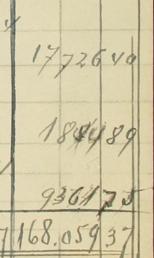 17726 40
184489
936175
7168.05937